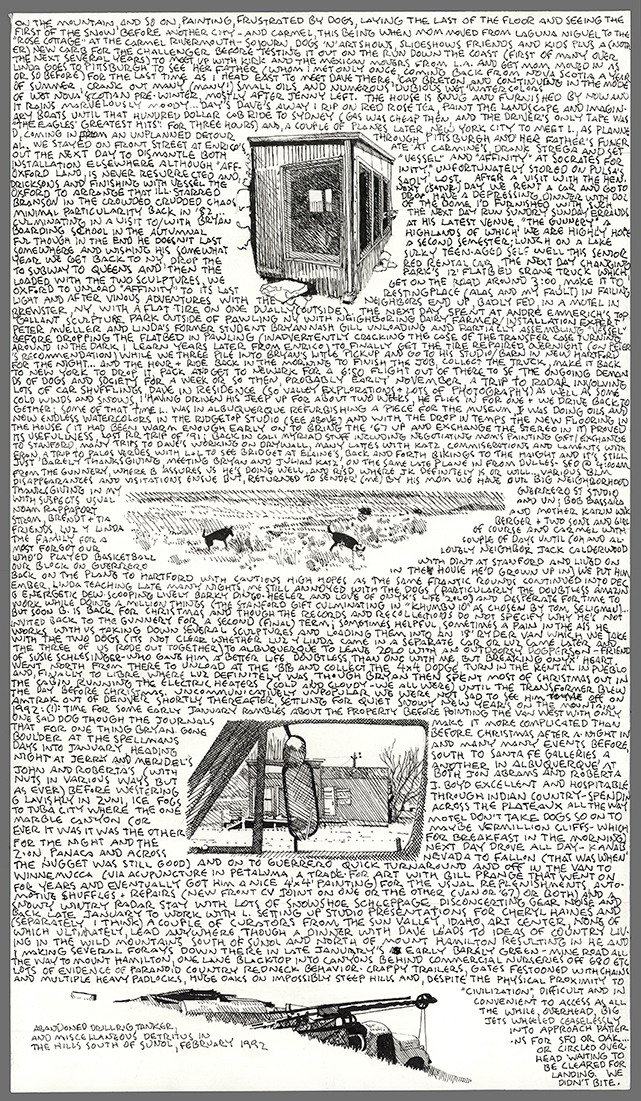 ON THE MOUNTAIN, AND SO ON, PAINTING, FRUSTRATED BY DOGS, LAYING THE LAST OF THE FLOOR AND SEEING THE
FIRST OF THE SNOW BEFORE ANOTHER CITY - AND CARMEL, THIS BEING WHEN MOM MOVED FROM LAGUNA NIGUEL TO THE
"ROSE COTTAGE" AT THE CARMEL RIVERMOUTH - SOJOURN, DOGS 'N' ART SHOWS, SLIDESHOWS FRIENDS AND KIDS PLUS A (NOTH-
ER) NEW CARB FOR THE CHALLENGER BEFORE TESTING IT OUT ON THE RUN DOWN THE COAST (FIRST OF MANY OVER
THE NEXT SEVERAL YEARS) TO MEET UP WITH KIRK AND THE MEXICAN MOVERS FROM L.A. AND GET MOM MOVED IN AS
LINDA GOES TO PITTSBURGH TO SEE HER FATHER (WHOM I MET ONLY ONCE, COMING BACK FROM NOVA SCOTIA A YEAR
OR SO BEFORE) FOR THE LAST TIME AS I HEAD EAST TO MEET DAVE THERE, CAP BRETON AND CONTINUENTS IN THE MODE
OF SUMMER, CRANK OUT MANY (MANY) SMALL OILS AND NUMEROUS DUBIOUS WET WATERCOLORS
OF WET NOVA SCOTIAN PRE-WINTER, MOSTLY AFTER DENNY LEFT. THE HOUSE IS SNUG AND FURNISHED BY NOW AND
IT RAINS MARVELOUSLY MOODY... DAY'S DAVE'S AWAY I RIP OLD RED ROSE TEA, PAINT THE LANDSCAPE AND IMAGIN-
ARY BOATS UNTIL THAT HUNDRED DOLLAR CAB RIDE TO SYDNEY (GAS WAS CHEAP THEN, AND THE DRIVER'S ONLY TAPE WAS
"THE EAGLES' GREATEST HITS" FOR THREE HOURS) AND, A COUPLE OF PLANES LATER NEW YORK CITY TO MEET L. AS PLANNED
COMING FROM AN UNPLANNED DETOUR THROUGH PITTSBURGH AND HER FATHER'S FUNER-
AL. WE STAYED ON FRONT STREET AT ENRICO'S ATE AT CARMINE'S, DRANK STREGA AND SET
OUT THE NEXT DAY TO DISMANTLE BOTH "VESSEL" AND "AFFINITY" AT SOCRATES FOR
INSTALLATION ELSEWHERE ALTHOUGH "AFF-INITY" UNFORTUNATELY STORED ON PULSAK
OXFORD LAND, IS NEVER RESURRECTED AND, SADLY LOST. AFTER A VISIT WITH THE HEN-
DRICKSONS AND FINISHING WITH VESSEL THE NEXT (SATUR) DAY WE RENT A CAR AND GO TO
OXFORD TO ARRANGE THAT ILL-STARRED DROP HAVE A DEPRESSING DINNER WITH DOC
BRANSON IN THE CROWDED CRUDDED CHAOS OF THE DOME I'D FURNISHED WITH SUCH
MINIMAL PARTICULARITY BACK IN '82. THE NEXT DAY RUN SUNDRY SUNDAY ERRANDS
CULMINATING IN A VISIT TO/WITH BRYAN AT HIS LATEST VENUE "THE GUNNERY"
BOARDING SCHOOL IN THE AUTUMNAL HIGHLANDS OF WHICH WE ARE HIGHLY HOPE-
FUL THOUGH IN THE END HE DOESN'T LAST A SECOND SEMESTER; LUNCH ON A LAKE
SOMEWHERE AND WISHING HIS SOMEWHAT SURLY TEEN-AGED SELF WELL THIS SENIOR
YEAR WE GET BACK TO NY, DROP THE RED RENTAL CAR. THE NEXT DAY CHANGING
TO SUBWAY TO QUEENS AND THEN THE PARK'S 12' FLATBED CRANE TRUCK WHICH
LOADED WITH THE TWO SCULPTURES, WE GET ON THE ROAD AROUND 3:00, MAKE IT TO
OXFORD TO UNLOAD "AFFINITY" TO ITS LAST RESTING PLACE (ALAS, AND MY FAULT) IN FADING
LIGHT AND AFTER VINOUS ADVENTURES WITH THE NEIGHBORS END UP, BADLY FED, IN A MOTEL IN
BREWSTER, NY, WITH A FLAT TIRE ON ONE DUALLY (OUTSIDE). THE NEXT DAY, SPENT AT ANDRE EMMERICH'S TOP
GALLANT SCULPTURE PARK OUTSIDE OF PAWLING NY WITH NEIGHBORING DAIRY FARMER/INSTALLATION EXPERT
PETER MUELLER AND LINDA'S FORMER STUDENT BRYAN NASH GILL UNLOADING AND PARTIALLY ASSEMBLING "VESSEL"
BEFORE DROPPING THE FLATBED IN PAWLING (INADVERTENTLY CRACKING THE CASE OF THE TRANSFER CASE TURNING
AROUND IN THE DARK, I LEARN YEARS LATER FROM ENRICO) TO FINALLY GET THE TIRE REPAIRED OVERNIGHT (ON PETER'S
RECOMMENDATION) WHILE WE THREE PILE INTO BRYAN'S LITTLE PICKUP AND GO TO HIS STUDIO/BARN IN NEW HARTFORD
FOR THE NIGHT. AND THE HOUR + RIDE BACK IN THE MORNING TO FINISH THE JOB, COLLECT THE TRUCK, MAKE IT BACK
TO NEW YORK TO DROP IT, PACK AND GET TO NEWARK FOR A 6:50 FLIGHT OUT OF THERE TO SF THE ONGOING DEMAN-
DS OF DOGS AND SOCIETY FOR A WEEK OR SO THEN, PROBABLY EARLY NOVEMBER, A TRIP TO RADAR INVOLVING
LOTS OF CAR SHUFFLING, DAVE IN RESIDENCE (SO VALLEY EXPLORATIONS + LOTS OF PHOTOGRAPHY) AS WELL AS SOME
COLD WINDS AND SNOWS, I HAVING DRIVEN HIS JEEP UP FOR ABOUT TWO WEEKS, HE FLIES IN FOR ONE + WE DRIVE BACK TO-
GETHER; SOME OF THAT TIME L. WAS IN ALBUQUERQUE REFURBISHING A PIECE FOR THE MUSEUM, I WAS DOING OILS AND
NEW ENDLESS WATERCOLORS IN THE RIDGETOP STUDIO (SEE ABOVE) AND WITH THE DROP IN TEMPS THE NEW FLOORING IN
THE HOUSE (IT HAD BEEN WARM ENOUGH EARLY ON TO BRING THE '67 UP AND EXCHANGE THE STEREO IN IT) PROVED
ITS USEFULNESS. LAST R.R. TRIP OF '91. BACK IN CALI MYRIAD STUFF INCLUDING NEGOTIATING MOM'S PAINTING GET/EXCHANGE
TO STANFORD, MANY TRIPS TO DAVE'S WORKING ON DRYWALL, MANY LATES WITH KATZ. COMMISERATIONS AND LAMENTS WITH
FRAN, A TRIP TO PALOS VERDES WITH L+L TO SEE BRIDGET AT ELAINE'S, BACK AND FORTH BIKINGS TO THE HAIGHT AND IT'S STILL
JUST BARELY THANKSGIVING, MEETING BRYAN AND JULIAN KATZ, ON THE SAME LATE PLANE IN FROM DULLES - SFO @ 1:00AM,
FROM THE GUNNERY, WHERE B ASSURES US HE'S DOING WELL, AND RISD WHERE J.K. DEFINITELY IS OR WILL. VARIOUS "BLM"
DISAPPEARANCES AND VISITATIONS ENSUE BUT, RETURNED TO SENDER (ME) BY HIS MOM WE HAVE OUR BIG NEIGHBORHOOD
THANKSGIVING IN MY GUERRERO ST STUDIO
WITH SUSPECTS USUAL AND UN; BOB BASSARA
NOAM RAPPAPORT AND MOTHER KARIN WIK-
STROM, BRENDT + TIA BERGER + TWO SONS AND GIRL
FRIENDS, LULY LINDA OF COURSE AND CARMEL WITH
THE FAMILY FOR A COUPLE OF DAYS UNTIL (OH AND AL-
MOST FORGOT OUR LOVELY NEIGHBOR JACK CALDERWOOD
WHO'D PLAYED BASKETBALL WITH DINT AT STANFORD AND LIVED ON
OUR BLOCK ON GUERRERO IN THE HOUSE HE'D GROWN UP IN) WE PUT HIM
BACK ON THE PLANE TO HARTFORD WITH CAUTIOUS HIGH HOPES AS THE SAME FRANTIC ROUNDS CONTINUED INTO DEC-
EMBER, LINDA TEACHING LATE MANY NIGHTS, ME STILL ANNOYED WITH THE DOGS (PARTICULARLY THE DOUBTLESS AMAZIN-
G ENERGETIC DEW-SCOOPING LIVELY BARKY DINGO-HEELER, AND LOVE OF BRYAN'S LIFE "ZOLO") AND DESPERATE FOR TIME TO
WORK WHILE DOING A MILLION THINGS (THE STANFORD GIFT CULMINATING IN "KHUMBU 10" AS CHOSEN BY TOM SELIGMAN)...
BUT SOON B. IS BACK FOR CHRISTMAS AND THOUGH THE RECORDS AND RECOLLECTIONS DO NOT SPECIFY WHY HE'S NOT
INVITED BACK TO THE GUNNERY FOR A SECOND (FINAL) TERM, SOMETIMES HELPFUL, SOMETIMES A PAIN IN THE ASS HE
WORKS WITH US TAKING DOWN SEVERAL SCULPTURES AND LOADING THEM INTO AN 18' RYDER VAN WHICH WE TAKE
WITH THE TWO DOGS (IT'S NOT CLEAR WHETHER LULY + LINDA CAME IN A SEPARATE CAR OR LUZ CAME LATER AND
THE THREE OF US RODE OUT TOGETHER) TO ALBUQUERQUE TO LEAVE ZOLO WITH AN OUTDOORSY DOG PERSON-FRIEND
OF SUSIE SCHLESINGER - WHO GAVE HIM A BETTER LIFE DOUBTLESS THAN ONE WITH ME, BUT BREAKING ONLY HEART
WENT NORTH FROM THERE TO UNLOAD AT THE BIB AND COLLECT THE 4X4 DODGE, TURN IN THE RENTAL IN PUEBLO
AND, FINALLY TO LIBRE WHERE LUZ DEFINITELY WAS THOUGH BRYAN THEN SPENT MOST OF CHRISTMAS OUT IN
THE CABIN RUNNING THE ELECTRIC HEATERS (COLD AND CLOUDY - WE ALL WERE) UNTIL THE TRANSFORMER BLEW
THE DAY BEFORE CHRISTMAS. UNCOMMUNICATIVELY UNPOPULAR WE WERE NOT SAD TO SEE HIM OFF ON
AMTRAK OUT OF DENVER SHORTLY THEREAFTER, SETTLING FOR QUIET SNOWY NEW YEAR'S ON THE MOUNTAIN
1992. (!) TIME FOR SOME EARLY JANUARY RAMBLES ABOUT THE PROPERTY BEFORE POINTING THE VAN WEST WITH ONLY
ONE SAD DOG THOUGH THE JOURNALS MAKE IT MORE COMPLICATED THAN
THAT FOR ONE THING BRYAN GONE BEFORE CHRISTMAS AFTER A NIGHT IN
BOULDER AT THE SPELLMANS AND MANY MANY EVENTS BEFORE,
DAYS INTO JANUARY, HEADING SOUTH TO SANTA FE GALLERIES A
NIGHT AT JERRY AND MERIDEL'S ANOTHER IN ALBUQUERQUE AT
JOHN AND ROBERTA'S (WITH BOTH JON ABRAMS AND ROBERTA
NUTS IN VARIOUS WAYS BUT J. BOYD EXCELENT AND HOSPITABLE
AS EVER) BEFORE WESTERING THROUGH INDIAN COUNTRY - SPENDIN-
G LAVISHLY IN ZUNI, ICE FOGS ACROSS THE PLATEAUX ALL THE WAY
TO TUBA CITY WHERE THE ONE MOTEL DON'T TAKE DOGS SO ON TO
MARBLE CANYON (OR MAYBE VERMILLION CLIFFS - WHICH
EVER IT WAS IT WAS THE OTHER FOR BREAKFAST IN THE MORNING)
FOR THE NIGHT AND THE NEXT DAY DROVE ALL DAY - KANAB
ZION, PANACA AND ACROSS NEVADA TO FALLON (THAT WAS WHEN
THE NUGGET WAS STILL GOOD) AND ON TO GUERRERO QUICK TURNAROUND AND OFF IN THE VAN TO
WINNEMUCCA (VIA ACUPUNCTURE IN PETALUMA A TRADE FOR ART WITH BILL PRANGE THAT WENT ON
FOR YEARS AND EVENTUALLY GOT HIM A NICE 4'X4' PAINTING) FOR THE USUAL REPLENISHMENTS, AUTO-
MOTIVE SHUFFLES + REPAIRS (NEW FRONT CV JOINT ON ONE OR THE OTHER (VAN OR '67) OR BOTH) AND A
SNOWY WINTRY RADAR STAY WITH LOTS OF SNOWSHOE SCHLEPPAGE, DISCONCERTING GEAR NOISE AND
BACK LATE JANUARY TO WORK WITH L. SETTING UP STUDIO PRESENTATIONS FOR CHERYL HAINES AND
(SEPARATELY I THINK) A COUPLE OF CURATORS FROM THE SUN VALLEY, IDAHO, ART CENTER, NONE OF
WHICH ULTIMATELY, LEAD ANYWHERE THOUGH A DINNER WITH DAVE LEADS TO IDEAS OF COUNTRY LIV-
ING IN THE WILD MOUNTAINS SOUTH OF SUNOL AND NORTH OF MOUNT HAMILTON RESULTING IN HE AND
I MAKING SEVERAL FORAYS DOWN THERE IN LATE JANUARY'S EARLY BARELY GREEN - MINE ROAD ALL
THE WAY TO MOUNT HAMILTON, ONE LANE BLACKTOP INTO CANYONS BEHIND COMMERCIAL NURSERIES OFF 680 ETC
LOTS OF EVIDENCE OF PARANOID COUNTRY REDNECK BEHAVIOR - CRAPPY TRAILERS, GATES FESTOONED WITH CHAINS
AND MULTIPLE HEAVY PADLOCKS, HUGE OAKS ON IMPOSSIBLY STEEP HILLS AND, DESPITE THE PHYSICAL PROXIMITY TO
"CIVILIZATION", DIFFICULT AND IN
CONVENIENT TO ACCESS AS ALL
THE WHILE, OVERHEAD, BIG
JETS WHEELED CEASELESSLY
INTO APPROACH PATTER
-NS FOR SFO OR OAK...
OR CIRCLED OVER
HEAD WAITING TO
BE CLEARED FOR
LANDING. WE
DIDN'T BITE.
ABANDONED DRILLING TANKER,
AND MISCELLANEOUS DETRITUS IN
THE HILLS SOUTH OF SUNOL, FEBRUARY 1992